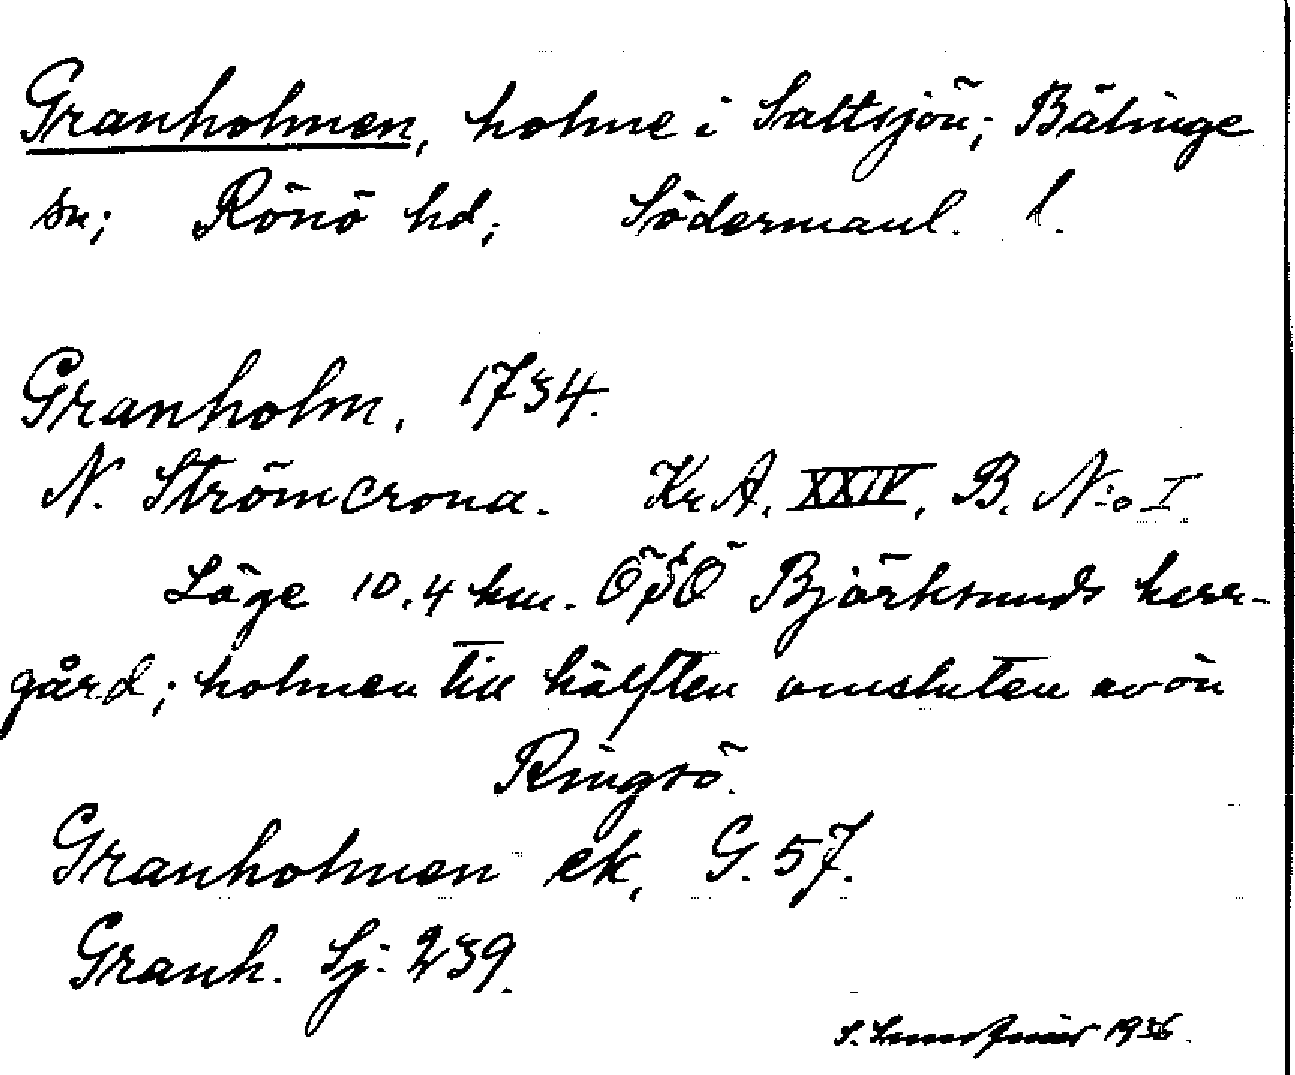 Granholmen, holme i Saltsjön; Bälinge
sn; Rönö hd; Södermanl. l.
Granholm, 1734.
N. Strömcrona. Kr. A. XXIV. B. N:o I.
Läge 10,4 km. ÖSÖ Björksunds herr-
gård; holmen till hälften omsluten av ön
Ringsö.
Granholmen ek. G. 57.
Granh. Sj: 239.
S. 1936.